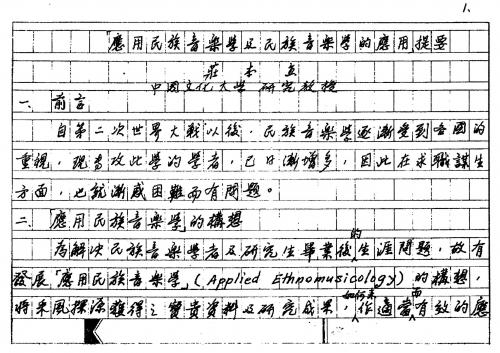 1.
應用民族音樂學及民族音樂學的應用提要
莊本立
中國文化大學研究教授
一、前言
自第二次世界大戰以後，民族音樂學逐漸受到各國的
重視，現專攻此學的學者，已日漸增多，因此在求職謀生
方面，也就漸感困難而有問題。
二、應用民族音樂學的構想
為解決民族音樂學者及研究生畢業後的生涯問題，故有
發展「應用民族音樂學」(Applied Ethnomusicology)的構想，
將采風探源獲得之寶貴資料及研究成果，如何來作適當而有效的應